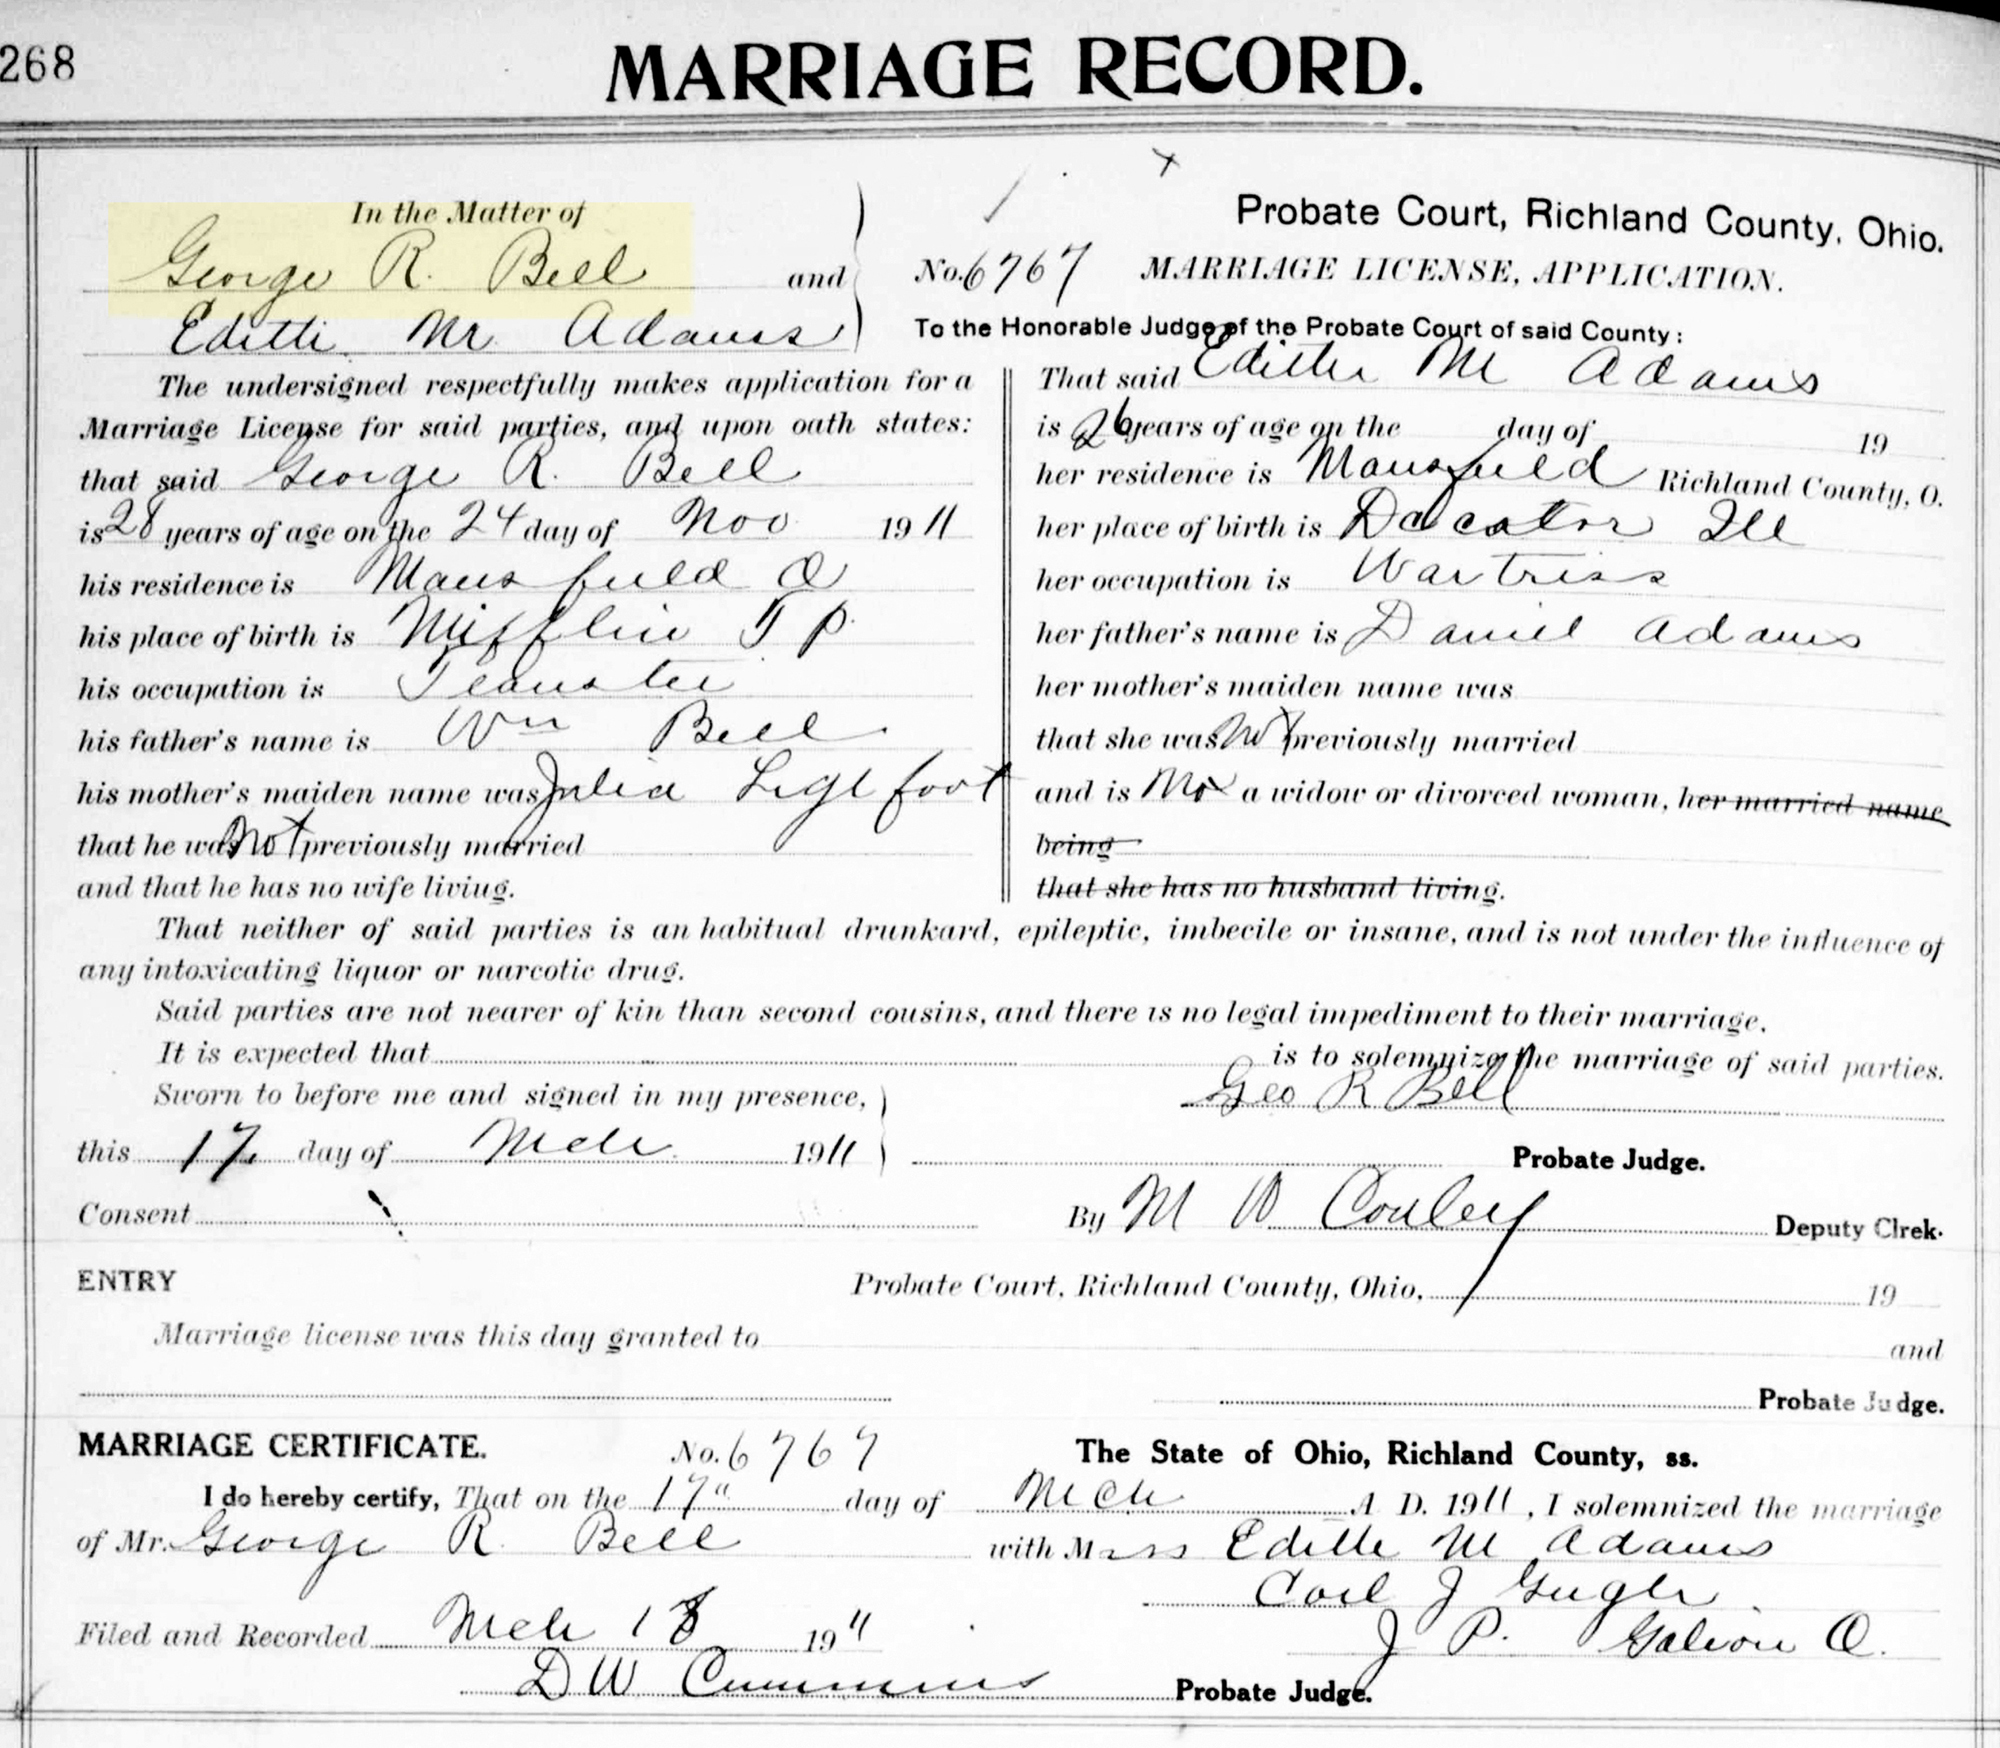 268
MARRIAGE RECORD.
In the Matter of
George R. Bell and
Edith M Adams
Probate Court, Richland County, Ohio.
No. 6767 MARRIAGE LICENSE, APPLICATION.
To the Honorable Judge of the Probate Court of said County:
The undersigned respectfully makes application for a
Marriage License for said parties, and upon oath states:
that said George R. Bell
is 28 years of age on the 24 day of Nov 1911
his residence is Mansfield O
his place of birth is Mifflin T P.
his occupation is Teamster
his father's name is Wm Bell
his mother's maiden name was Julia Ligtfoot
that he was Not previously married
and that he has no wife living.
That said Edith M Adams
is 26 years of age on the day of 19
her residence is Mansfield Richland County, O.
her place of birth is Decator Ill
her occupation is Waitriss
her father's name is Daniel Adams
her mother's maiden name was
that she was Not previously married
and is Not a widow or divorced woman, her married name
being
that she has no husband living.
That neither of said parties is an habitual drunkard, epileptic, imbecile or insane, and is not under the influence of
any intoxicating liquor or narcotic drug.
Said parties are not nearer of kin than second cousins, and there is no legal impediment to their marriage.
It is expected that is to solemnize the marriage of said parties.
Sworn to before me and signed in my presence, Geo R Bell
this 17 day of Mch 1911 Probate Judge.
Consent By M W Conley Deputy Clrek.
ENTRY Probate Court, Richland County, Ohio, 19
Marriage license was this day granted to and
Probate Judge.
MARRIAGE CERTIFICATE. No. 6767 The State of Ohio, Richland County, ss.
I do hereby certify, That on the 17" day of Mch A D. 1911, I solemnized the marriage
of Mr. George R. Bell with Miss Edith M Adams
Carl J Gugler
Filed and Recorded Mch 18 1911 J P. Galion O.
D W Cummins Probate Judge.